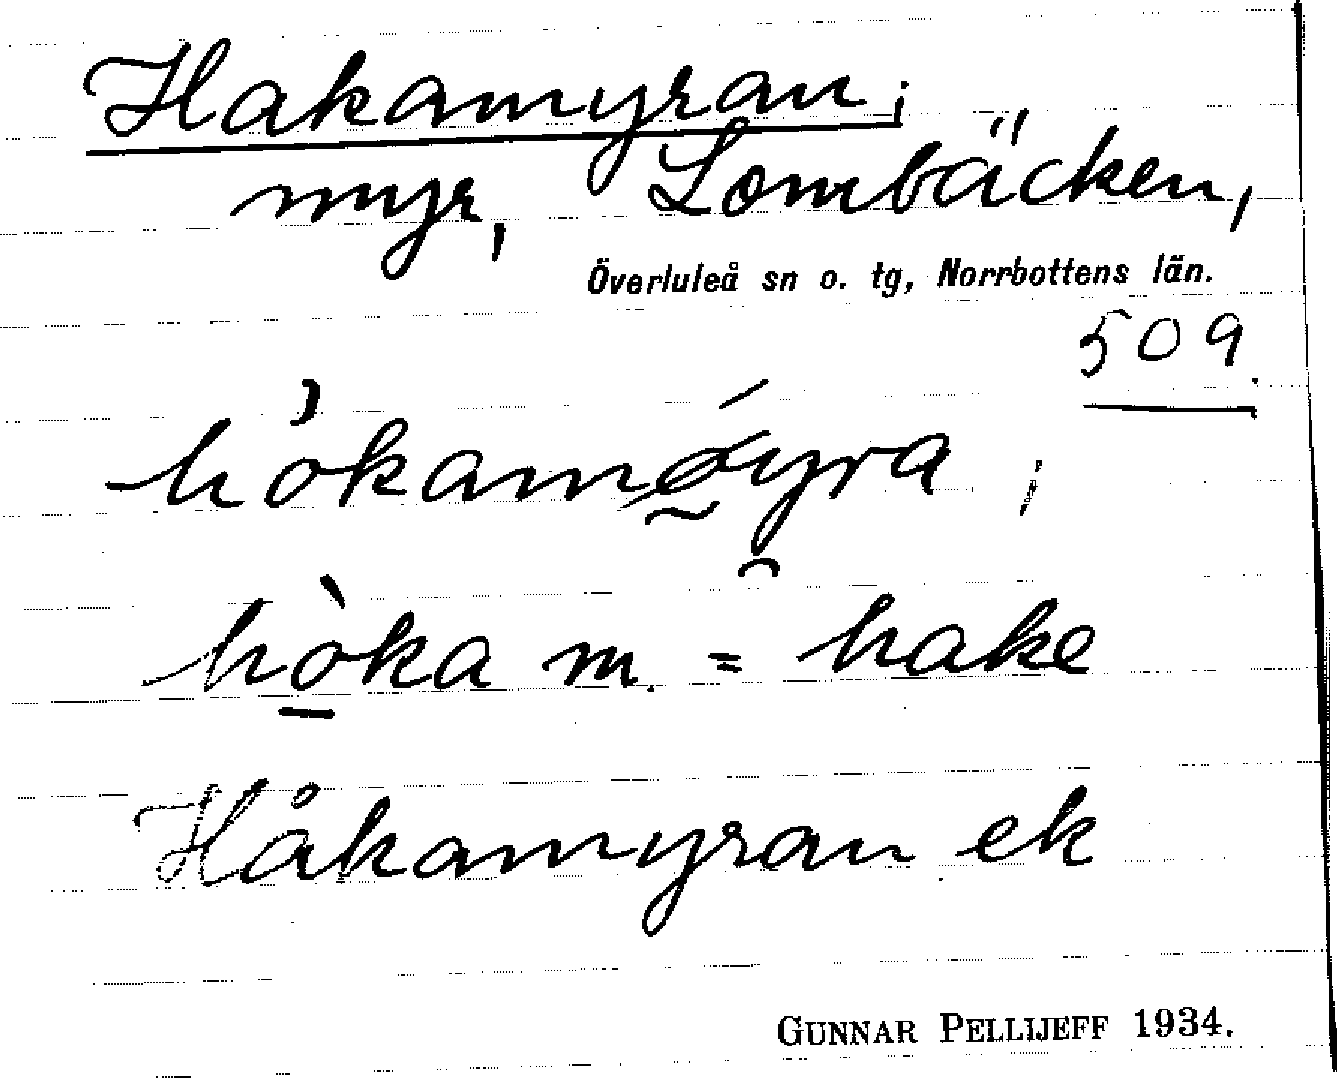 Hakamyran;
myr, Lombäcken,
Överluleå sn o. tg, Norrbottens län.
509.
hòkamøyra;
hòka m. = hake
Håkamyran ek
GUNNAR PELLIJEFF 1934.